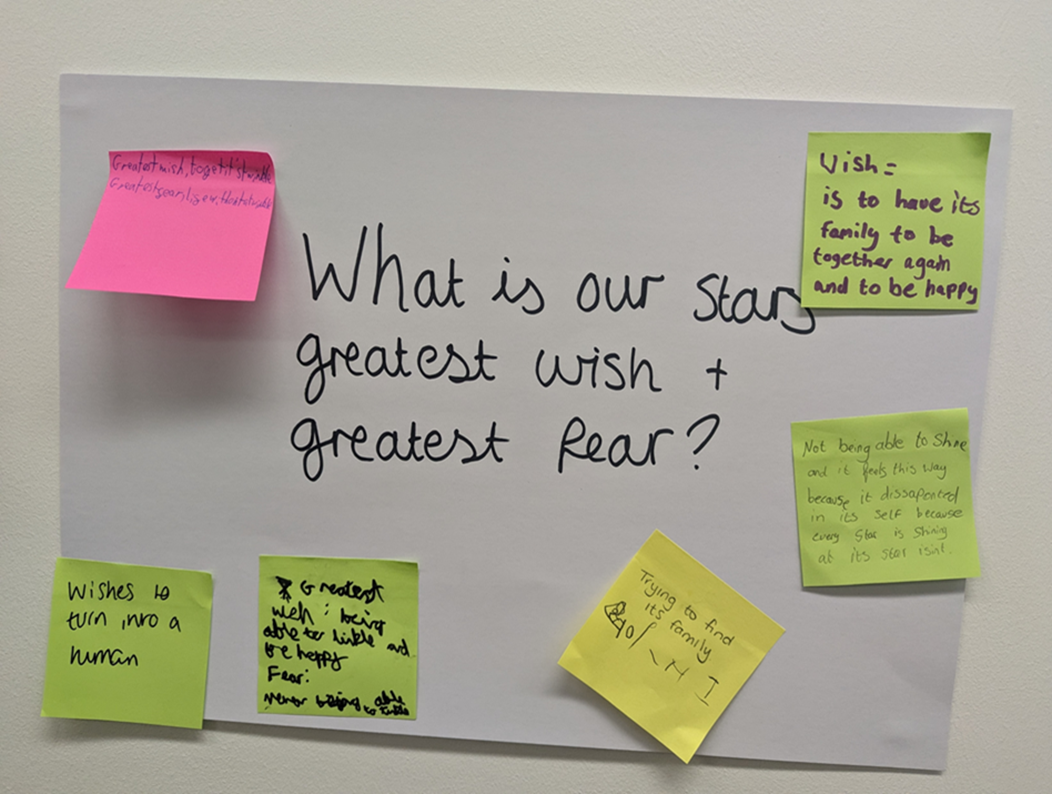 What is our stars
greatest wish +
greatest fear?
Greatest wish, to get it's
Greatest fear,
Wish =
is to have its
family to be
together again
and to be happy
Not being able to Shine
and it feels this way
because it dissapented
in its self because
every Star is Shining
at its star isint.
Wishes to
turn into a
human
Greatest
wish : being
able to and
be happy
Fear:
being able
to
Trying to find
its family